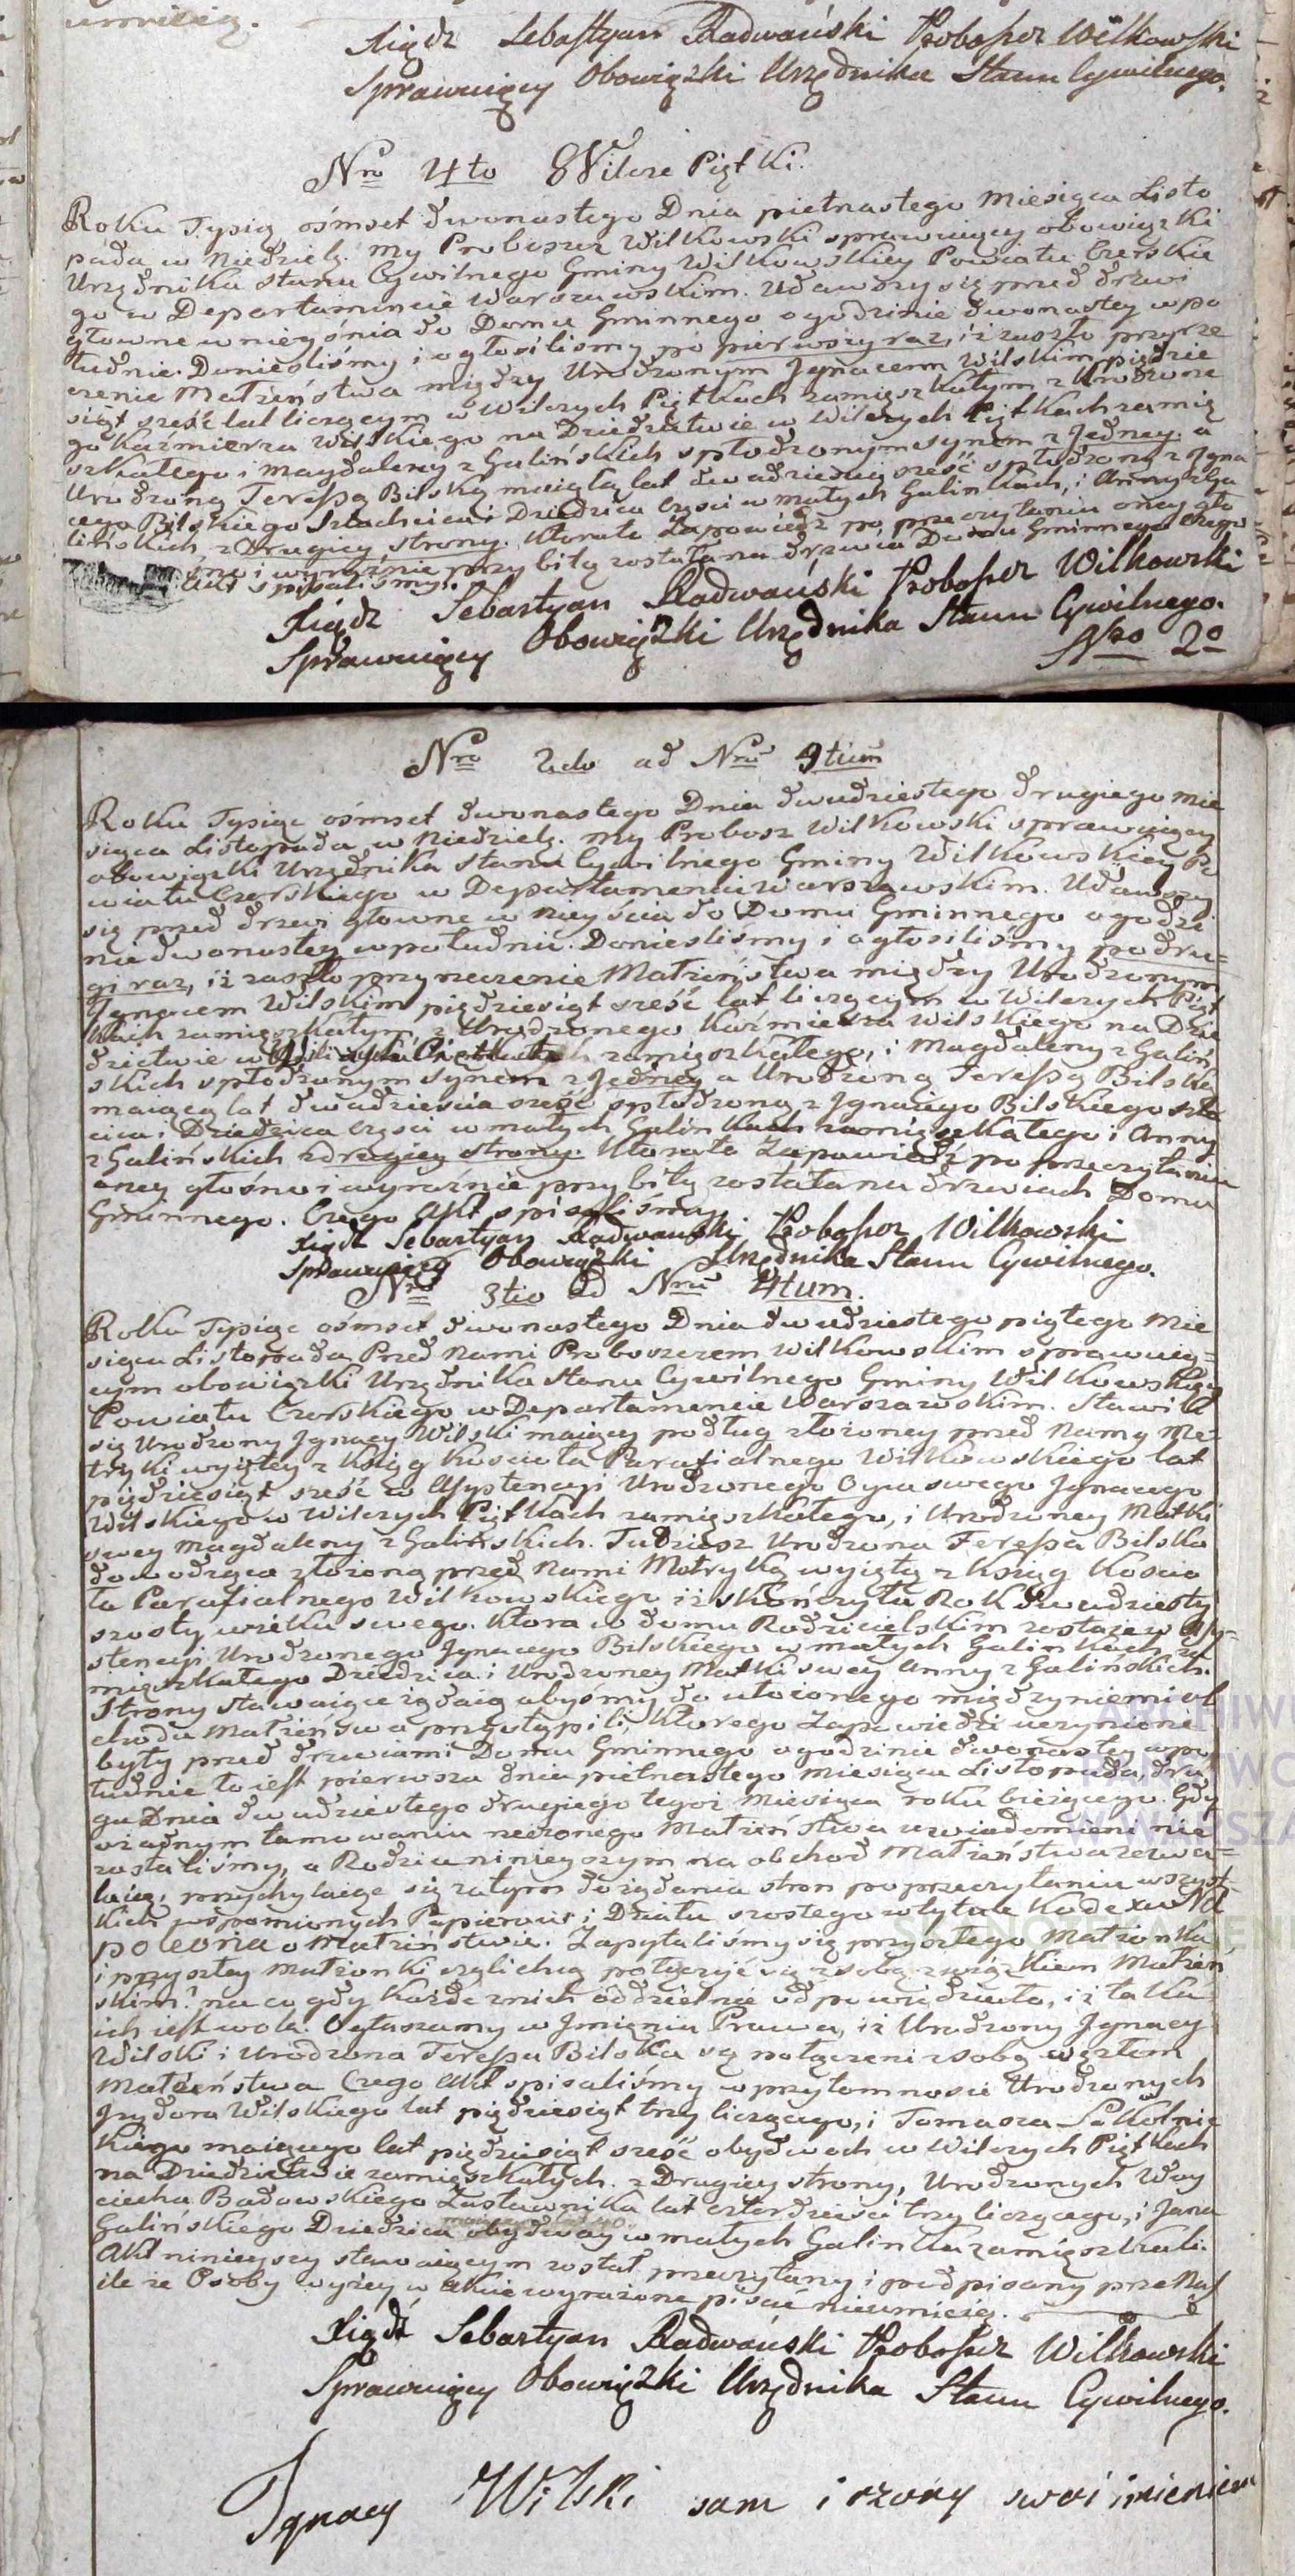 umieią.
Xiądz Sebastyan Radwański Proboszcz Wilkowski
Sprawuiący Obowiązki Urzędnika Stanu Cywilnego.
Nro 4to Wilcze Piętki.
Roku Tysiąc ośmset dwonastego Dnia piętnastego Miesiąca Listo
pada w Niedzielę. My Proboszcz Wilkowski sprawuiący obowiązki
Urzędnika stanu Cywilnego Gminy Wilkowskiey Powiatu Czerskie
go w Departamencie Warszawskim. Udawszy się przed drzwi
głowne wniyścia do Domu Gminnego o godzinie dwonastey w po
łudnie. Donieśliśmy i ogłosiliśmy po pierwszy raz, iż zaszło przyrze
czenie Małżeństwa między Urodzonym Jgnacem Wilskim pięćdzie
siąt sześć lat liczącym w Wilczych Piętkach zamięszkałym z Urodzone
go Kaźmierza Wilskiego na Dziedzictwie w Wilczych Piętkach zamię
szkałego i Magdaleny z Galińskich spłodzonym synem z Jedney. a
Urodzoną Teressą Bilską maiącą lat dwadzieścia sześć spłodzoną z Jgna
cego Bilskiego Szlachcica i Dziedzica Części w małych Galinkach, i Anny z Ga
lińskich z Drugiey strony. Ktorato Zapowiedź po przeczytaniu oney gło
śno i wyraźnie przybitą została na drzwia Domu Gminnego czego
Akt spisaliśmy.
Xiądz Sebastyan Radwański Proboszcz Wilkowski
Sprawuiący Obowiązki Urzędnika Stanu Cywilnego.
Nro 2o
Nro 2do ad Nrū 4tum
Roku Tysiąc ośmset dwonastego Dnia dwudziestego drugiego Mie
siąca Listopada w Niedzielę. My Probosz Wilkowski sprawuiący
obowiązki Urzędnika stanu Cywilnego Gminy Wilkowskiey Po
wiatu Czerskiego w Departamencie Warszawskim. Udawszy
się przed drzwi głowne w Niyścia do Domu Gminnego o godzi
nie dwonastey w południe. Donieśliśmy i ogłosiliśmy po dru=
gi raz, iż zaszło przyrzeczenie Małżeństwa między Urodzonym
Jgnacem Wilskim pięćdziesiąt sześć lat liczącym w Wilczych Pięt
kach zamięszkałym z Urodzonego Kaźmierza Wilskiego na Dzie
dzictwie w Wilczych Piętkach zamięszkałego, i Magdaleny z Galiń
skich spłodzonym synem z Jedney a Urodzoną Teressą Bilską
maiącą lat dwadzieścia sześć spłodzoną z Jgnacego Bilskiego szla
cica i Dziedzica części w małych Galinkach zamięszkałego i Anny
z Galińskich z drugiey strony. Ktorato Zapowiedź po przeczytaniu
oney głośno i wyraźnie przybitą została na drzwiach Domu
Gminnego. Czego Akt spisaliśmy.
Xiądz Sebastyan Radwański Proboszcz Wilkowski
Sprawuiący Obowiązki Urzędnika Stanu Cywilnego.
Nro 3tio ad Nrū 4tum.
Roku Tysiąc ośmset dwonastego Dnia dwudziestego piątego Mie
siąca Listopada Przed Nami Proboszczem Wilkowskim sprawuią=
cym obowiązki Urzędnika stanu Cywilnego Gminy Wilkowskiey
Powiatu Czerskiego w Departamencie Warszawskim. Stawił
się Urodzony Jgnacy Wilski maiący podług złożoney przed Namy Me
tryki wyiętey z Ksiąg Kościoła Parafialnego Wilkowskiego lat
pięćdziesiąt sześć w Assystencyi Urodzonego Oyca swego Jgnacego
Wilskiego w Wilczych Piętkach zamięszkałego, i Urodzoney Matki
swey Magdaleny z Galińskich. Tudziesz Urodzona Teressa Bilska
dowodząca złożoną przed Nami Metryką wyiętą z Ksiąg Kościo
ła Parafialnego Wilkowskiego iż skończyła Rok dwudziesty
szosty wieku swego. Ktora w domu Rodzicielskim zostaie w Assy=
stencyi Urodzonego Jgnacego Bilskiego w małych Galinkach za
mięszkałego Dziedzica i Urodzoney Matki swey Anny z Galińskich.
Strony stawaiące żądaią abyśmy do ułożonego między niemi ob
chodu Małżeństwa przystąpili, Ktorego Zapowiedzi uczynione
były przed drzwiami Domu Gminnego o godzinie dwonastey w po
łudnie to iest pierwsza dnia piętnastego Miesiąca Listopada, dru
ga Dnia dwudziestego drugiego tegoż Miesiąca roku bieżącego. Gdy
o żadnym tamowaniu rzeczonego Małżeństwa uwiadomieni nie
zostaliśmy, a Rodzice ninieyszym na obchod Małżeństwa zezwa=
laią, przychylaiąc się zatym do żądania stron po przeczytaniu wszyst=
kich wspomionych Papierow i Działu szostego w tytule Kodexu Na
poleona o Małżeństwie. Zapytaliśmy się przyszłego Małżonka
i przyszłey Małżonki czyli chcą połączyć się z sobą związkiem Małżeń
skim? na co gdy Każde z nich oddzielnie odpowiedziało, iż taka
ich iest wola. Ogłaszamy w Jmieniu Prawa, iż Urodzony Jgnacy
Wilski i Urodzona Teressa Bilska są połączeni z sobą węzłem
Małżeństwa. Czego Akt spisaliśmy w przytomności Urodzonych
Jzydora Wilskiego lat pięćdziesiąt trzy liczącego, i Tomasza Sokolnic
kiego maiącego lat pięćdziesiąt sześć obydwoch w Wilczych Piętkach
na Dziedzictwie zamięszkałych. z Drugiey strony, Urodzonych Woy
ciecha Badowskiego Zastawnika lat czterdzieści trzy liczącego, i Jana
Galińskiego Dziedzica obydway w małych Galinkach zamięszkali.
Akt ninieyszy stawaiącym został przeczytany i podpisany przez Nas
ile że Osoby wyżey w akcie wyrażone pisać nieumieią.
Xiądz Sebastyan Radwański Proboszcz Wilkowski
Sprawuiący Obowiązki Urzędnika Stanu Cywilnego.
Jgnacy Wilski sam i rzony swoi imieniem